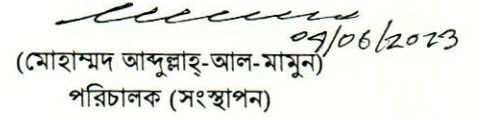 04/06/2023
(মোহাম্মদ আব্দুল্লাহ্-আল-মামুন)
পরিচালক (সংস্থাপন)